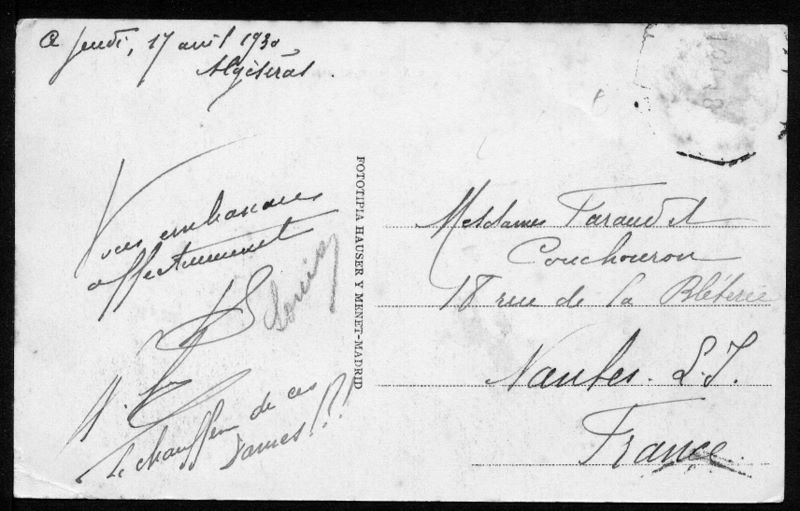 Jeudi, 17 avril 1930
Algésiras.
Vous embrassons
affectueusement
Louise
Le chauffeur de ces
Dames!?!
FOTOTIPIA HAUSER Y MENET-MADRID
Mesdames Faraud et
Couchouron
18 rue de la Bléterie
Nantes. L.I.
France